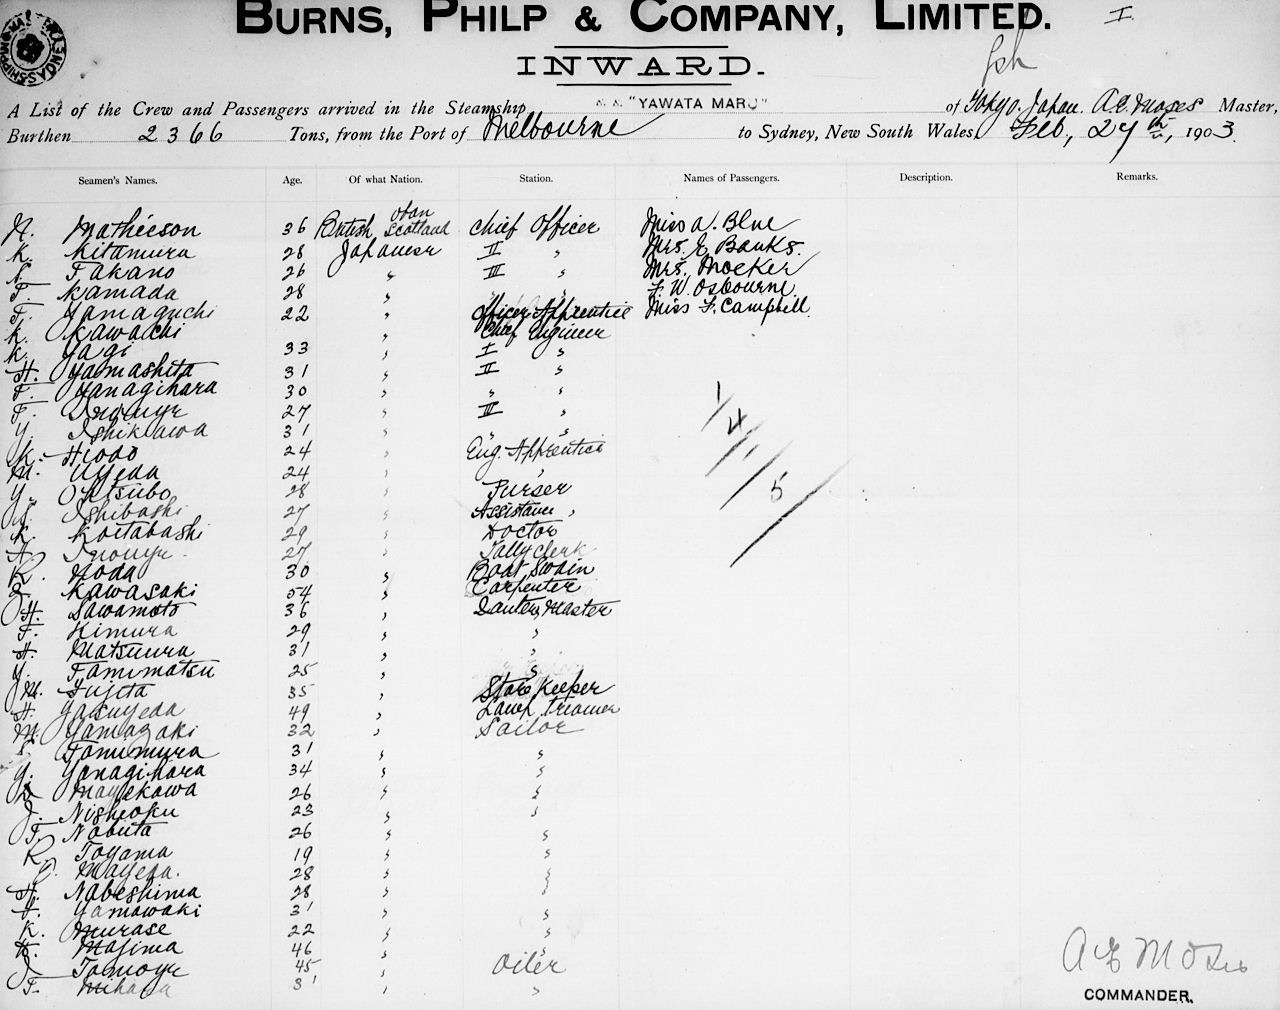 BURNS, PHILP & COMPANY, LIMITED. I
INWARD.
A List of the Crew and Passengers arrived in the Steamship S.S. "YAWATA MARU" of Tokyo, Japan. A.E. Moses Master,
Burthen 2366 Tons, from the Port of Melbourne to Sydney, New South Wales, Feb, 27th, 1903.
Seamen's Names. Age. Of what Nation. Station. Names of Passengers. Description. Remarks.
N. Mathieson 36 British Oban Scotland Chief Officer Miss A. Blue
K. Kitamura 28 Japanese II " Mrs. E Banks.
S. Takano 26 " III " Mrs. Mocker
T. Kamada 28 " " " F. W. Osbourne
T. Yamaguchi 22 " Officer Apprentice Miss F. Campbell.
K. Kawachi " Chief Engineer
K. Yagi 33 " I "
H. Yamashita 31 " II "
T. Yanagihara 30 " " "
T. Inouye 27 " III "
Y. Ishikawa 31 " " "
K. Hiodo 24 " Eng. Apprentice
M. Uyeda 24 " "
Y. Ohtsubo 28 " Purser
S. Ishibashi 27 " Assistance "
K. Koitabashi 29 " Doctor
H. Inouye 27 " Tally clerk
K. Noda 30 " Boat Swain
Kawasaki 54 " Carpenter
H. Sawamoto 36 " Quarter Master
T. Kimura 29 " "
H. Matsuura 31 " "
Y. Tanimatsu 25 " "
M. Fujita 35 " Store Keeper
H. Yasuyeda 49 " Lamp Trimmer
M. Yamazaki 32 " Sailor
Tanumura 31 " "
Y. Yanagihara 34 " "
Mayekawa 26 " "
J. Nishioku 23 " "
T. Nobuta 26 " "
R. Toyama 19 " "
Mayeda. 28 " "
H. Nabeshima 28 " "
H. Yamawaki 31 " "
K. Murase 22 " "
K. Majima 46 " "
J. Tomoye 45 " Oiler
T. Mihara 31 " "
1/4/5
A E Moses
COMMANDER.